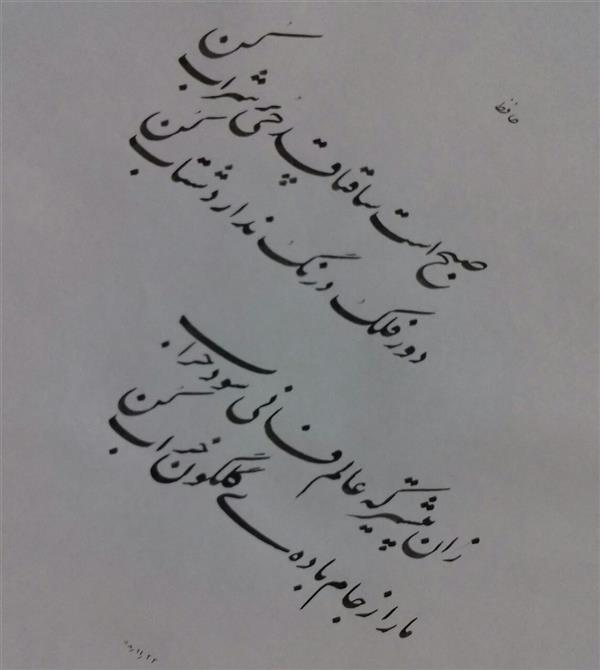 حافظ
صبح است ساقیا قدحی پر شراب کن
دور فلک درنگ ندارد شتاب کن
زان پیشتر که عالم فانی شود خراب
ما را ز جام باده ی گلگون خراب کن